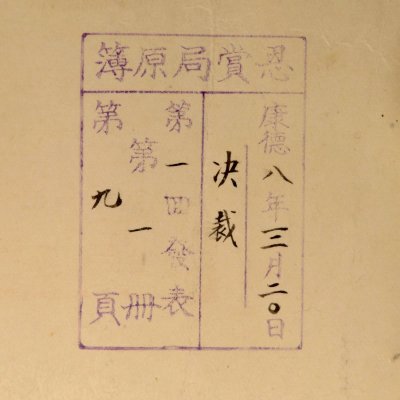 恩賞局原簿
康德八年三月二〇日
决裁
第一回發表
第一冊
第九頁